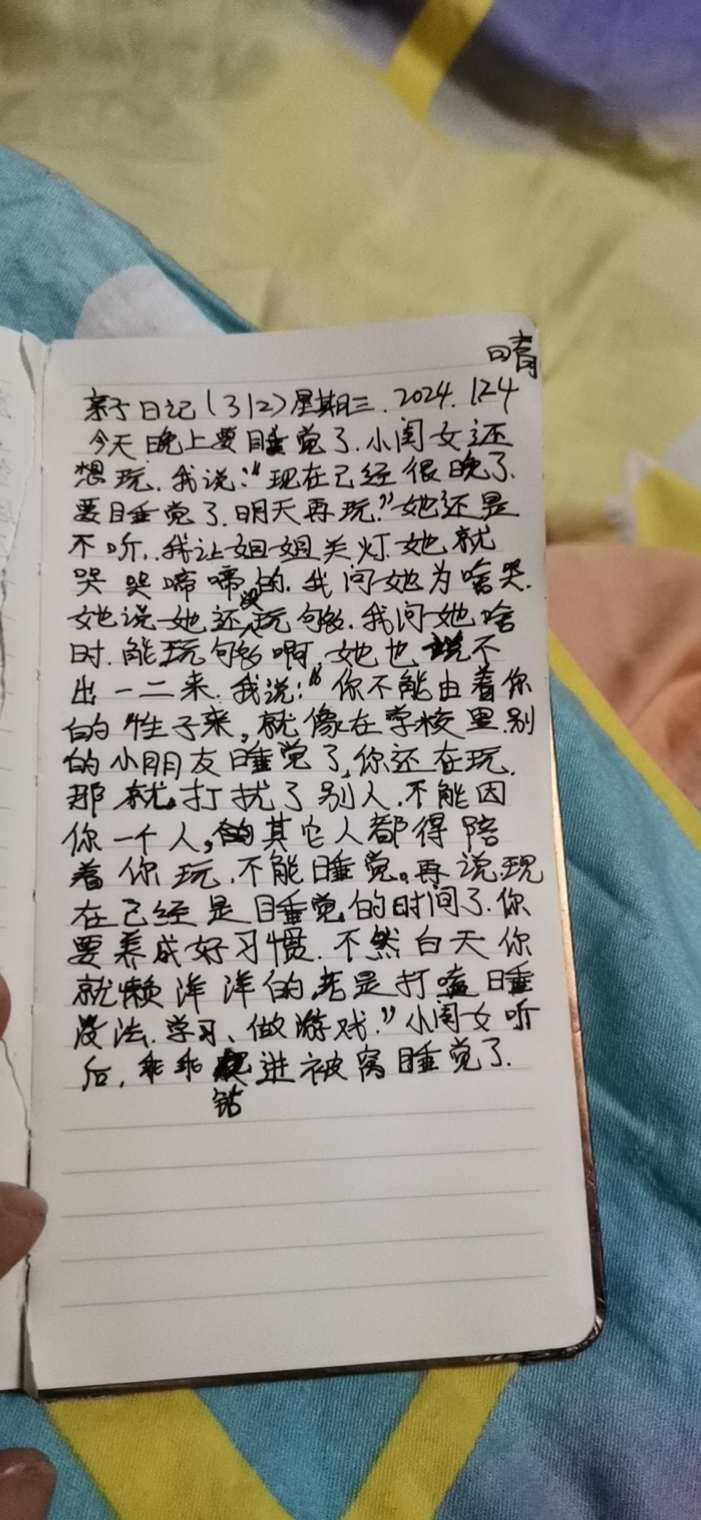 晴
亲子日记(312)星期三.2024.12.4
今天晚上要睡觉了.小闺女还
想玩.我说:“现在已经很晚了.
要睡觉了.明天再玩.”她还是
不听..我让姐姐关灯.她就
哭哭啼啼的.我问她为啥哭.
她说她还没玩够.我问她啥
时.能玩够啊,她也说不
出一二来.我说:“你不能由着你
的性子来,就像在学校里.别
的小朋友睡觉了,你还在玩.
那就打扰了别人.不能因
你一个人,的其它人都得陪
着你玩.不能睡觉。再说.现
在已经是睡觉的时间了.你
要养成好习惯.不然白天你
就懒洋洋的.老是打瞌睡
没法.学习、做游戏.”小闺女听
后,乖乖钻进被窝睡觉了.